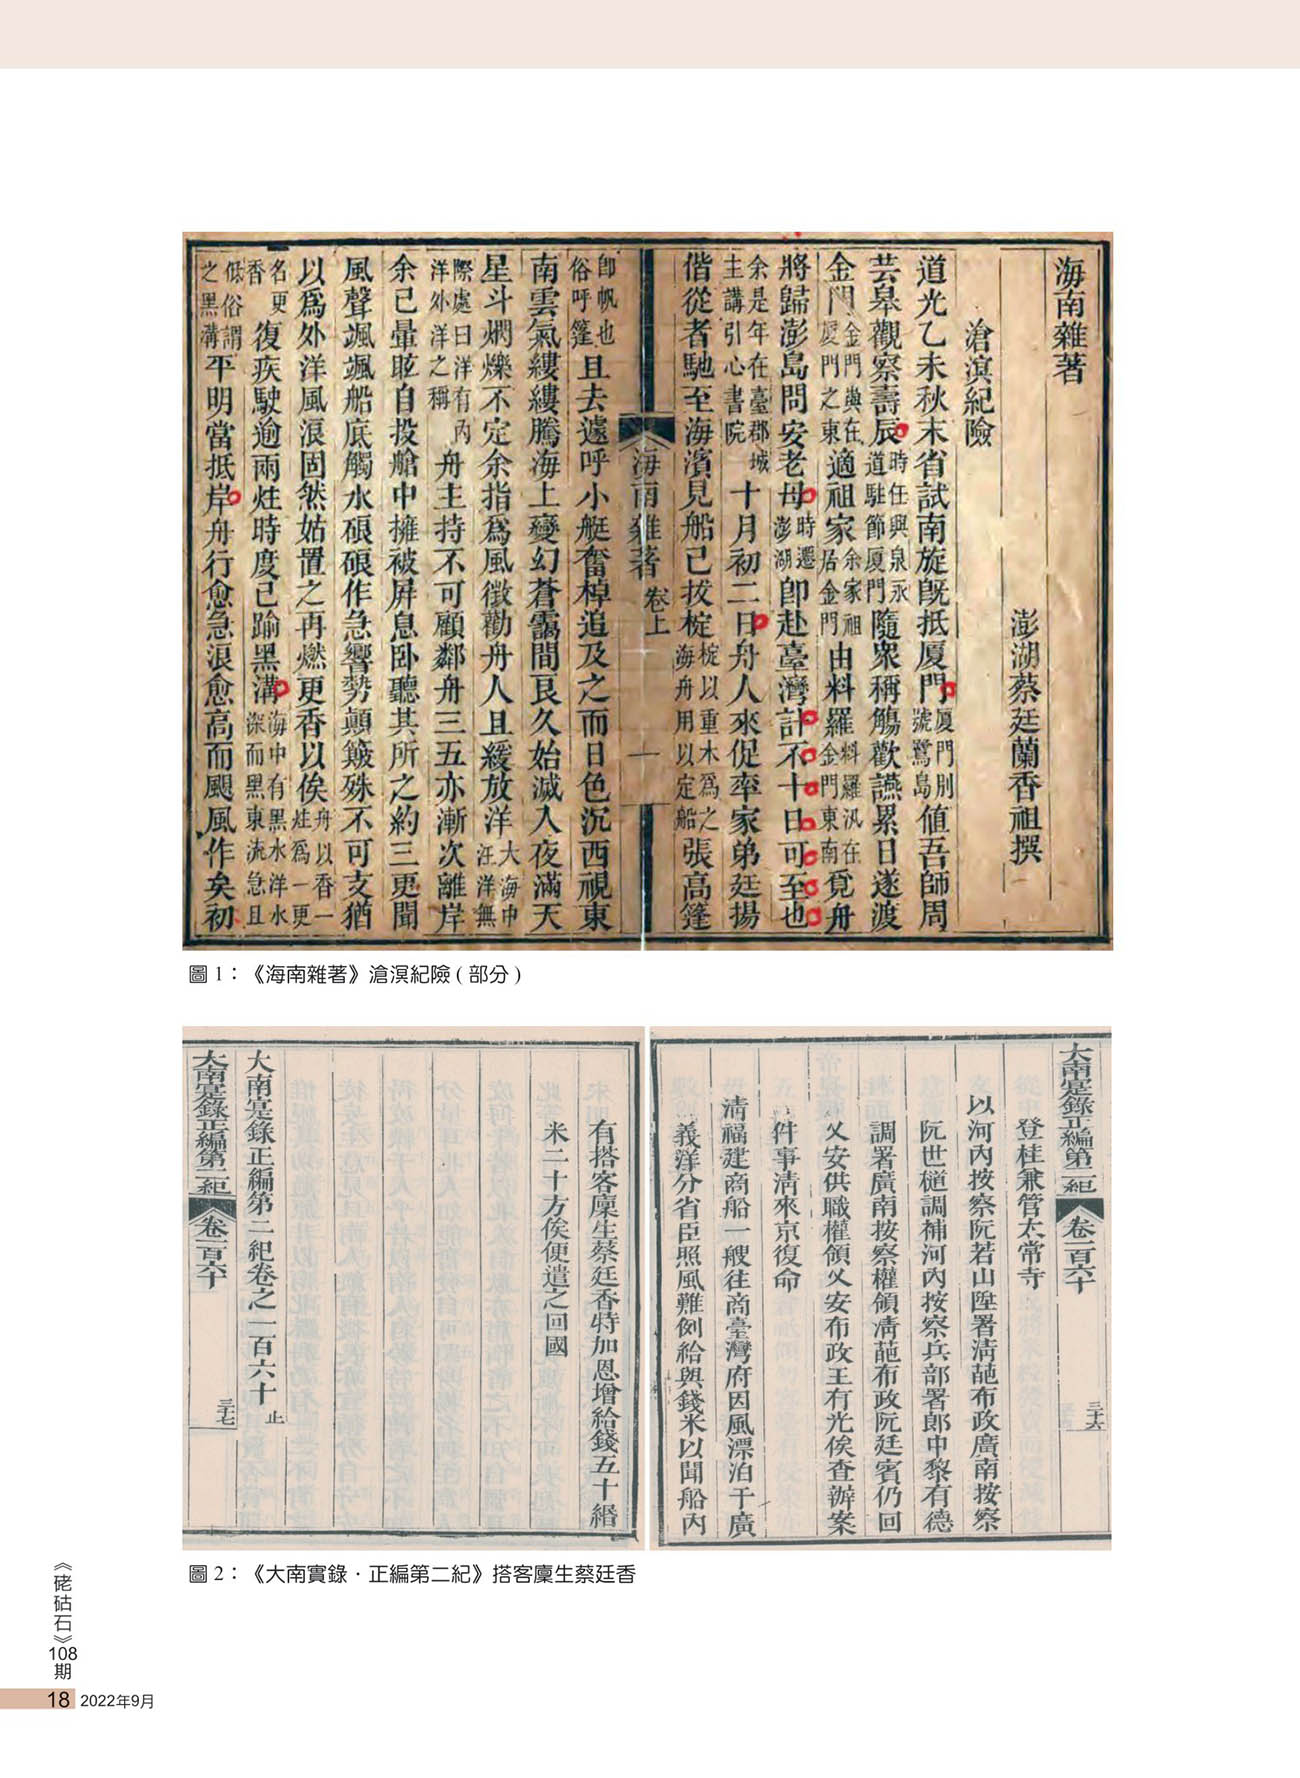 海南雜著
澎湖蔡廷蘭香祖撰
滄溟紀險
道光乙未秋末省試南旋旣抵厦門厦門別號鷺島値吾師周
芸皋觀察壽辰時任興泉永道駐節厦門隨衆稱觴歡讌累日遂渡
金門金門與在厦門之東適祖家余家祖居金門由料羅料羅汛在金門東南覓舟
將歸澎島問安老母時遷澎湖卽赴臺灣計不十日可至也
余是年在臺郡城主講引心書院十月初二日舟人來促率家弟廷揚
偕從者馳至海濱見船已拔椗椗以重木爲之海舟用以定船張高篷
海南雜著 卷上 一
卽帆也俗呼篷且去遽呼小艇奮棹追及之而日色沉西視東
南雲氣縷縷騰海上變幻蒼靄間艮久始滅入夜滿天
星斗燜爍不定余指爲風徵勸舟人且緩放洋大海中汪洋無
際處曰洋有內洋外洋之稱舟主持不可顧鄰舟三五亦漸次離岸
余已暈眩自投艙中擁被屛息卧聽其所之約三更聞
風聲颯颯船底觸水硠硠作急響勢顚簸殊不可支猶
以爲外洋風浪固然姑置之再燃更香以俟舟以香一炷爲一更
名更香復疾駛逾兩炷時度已踰黑溝海中有黑水洋水深而黑東流急且
低俗謂之黑溝平明當抵岸舟行愈急浪愈高而颶風作矣初
圖 1：《海南雜著》滄溟紀險 ( 部分 )
大南寔錄正編第二紀 卷一百六十 三十六
登桂兼管太常寺
以河內按察阮若山陞署淸葩布政廣南按察
阮世槌調補河內按察兵部署郎中黎有德
調署廣南按察權領淸葩布政阮廷賓仍回
乂安供職權領乂安布政王有光俟查辦案
件事淸來京復命
淸福建商船一艘往商臺灣府因風漂泊于廣
義洋分省臣照風難例給與錢米以聞船內
有搭客廩生蔡廷香特加恩增給錢五十緡
米二十方俟便遣之回國
大南寔錄正編第二紀卷之一百六十 止
大南寔錄正編第二紀 卷一百六十 三十七
圖 2：《大南實錄·正編第二紀》搭客廩生蔡廷香
《硓𥑮石》108期
18 2022年9月